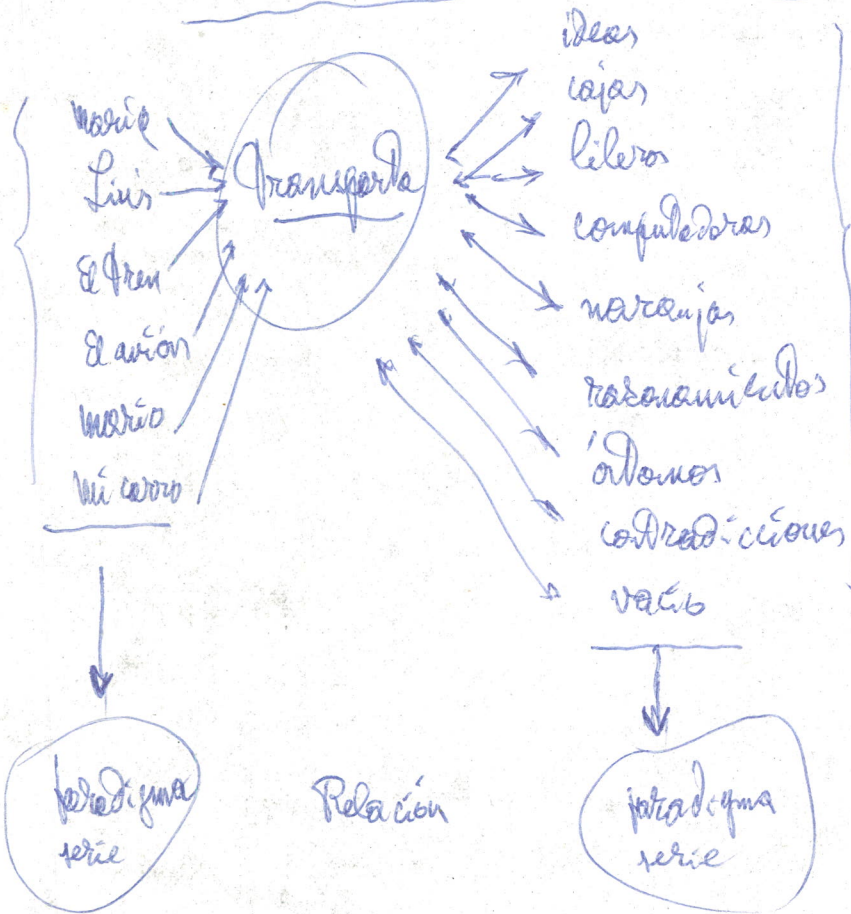 maria
Luis
El tren
El avión
mario
mi carro
Transporta
ideas
cajas
libros
computadoras
naranjas
razonamientos
átomos
contradicciones
vacío
paradigma
serie
Relación
paradigma
serie